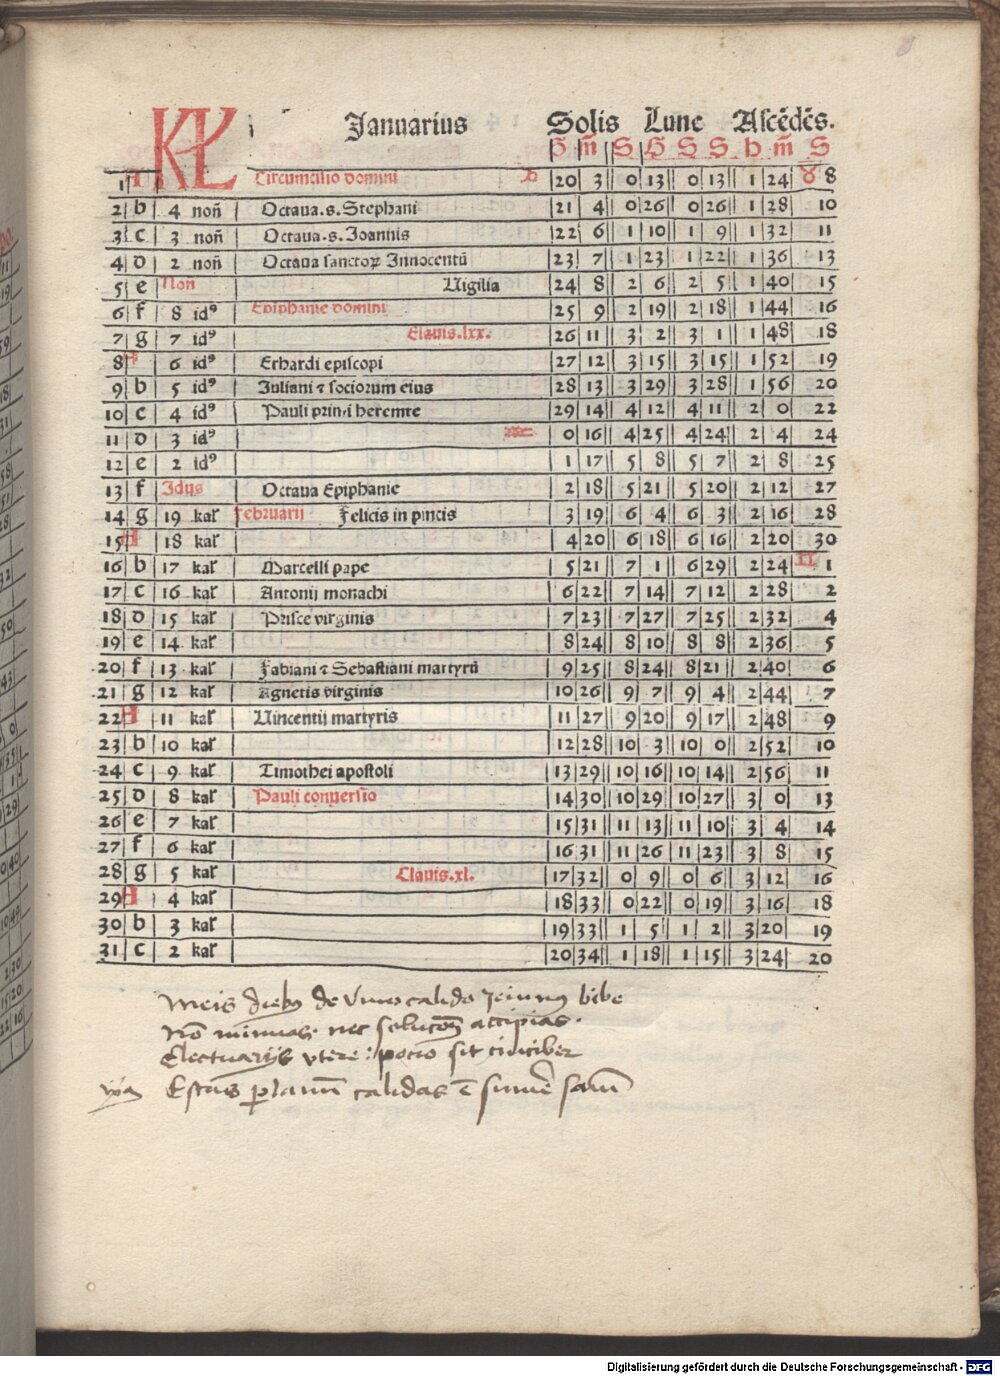 KL Januarius Solis Lune Ascēdēs.
S m̄ S S S S h m̄ S
1 A Circumcisio domini 20 3 0 13 0 13 1 24 ♉ 8
2 b 4 non̄ Octaua .s. Stephani 21 4 0 26 0 26 1 28 10
3 c 3 non̄ Octaua .s. Joannis 22 6 1 10 1 9 1 32 11
4 d 2 non̄ Octaua sanctoꝝ Innocentū 23 7 1 23 1 22 1 36 13
5 e Non̄ Uigilia 24 8 2 6 2 5 1 40 15
6 f 8 idꝰ Epiphanie domini 25 9 2 19 2 18 1 44 16
7 g 7 idꝰ Clauis .lxx. 26 11 3 2 3 1 1 48 18
8 A 6 idꝰ Erhardi episcopi 27 12 3 15 3 15 1 52 19
9 b 5 idꝰ Juliani ⁊ sociorum eius 28 13 3 29 3 28 1 56 20
10 c 4 idꝰ Pauli primi heremite 29 14 4 12 4 11 2 0 22
11 d 3 idꝰ ♒ 0 16 4 25 4 24 2 4 24
12 e 2 idꝰ 1 17 5 8 5 7 2 8 25
13 f Idus Octaua Epiphanie 2 18 5 21 5 20 2 12 27
14 g 19 kal̄ Februarij Felicis in pincis 3 19 6 4 6 3 2 16 28
15 A 18 kal̄ 4 20 6 18 6 16 2 20 30
16 b 17 kal̄ Marcelli pape 5 21 7 1 6 29 2 24 ♊ 1
17 c 16 kal̄ Antonij monachi 6 22 7 14 7 12 2 28 2
18 d 15 kal̄ Prisce virginis 7 23 7 27 7 25 2 32 4
19 e 14 kal̄ 8 24 8 10 8 8 2 36 5
20 f 13 kal̄ Fabiani ⁊ Sebastiani martyrū 9 25 8 24 8 21 2 40 6
21 g 12 kal̄ Agnetis virginis 10 26 9 7 9 4 2 44 7
22 A 11 kal̄ Uincentij martyris 11 27 9 20 9 17 2 48 9
23 b 10 kal̄ 12 28 10 3 10 0 2 52 10
24 c 9 kal̄ Timothei apostoli 13 29 10 16 10 14 2 56 11
25 d 8 kal̄ Pauli conuersio 14 30 10 29 10 27 3 0 13
26 e 7 kal̄ 15 31 11 13 11 10 3 4 14
27 f 6 kal̄ 16 31 11 26 11 23 3 8 15
28 g 5 kal̄ Clauis .xl. 17 32 0 9 0 6 3 12 16
29 A 4 kal̄ 18 33 0 22 0 19 3 16 18
30 b 3 kal̄ 19 33 1 5 1 2 3 20 19
31 c 2 kal̄ 20 34 1 18 1 15 3 24 20
Meis diebꝰ de vino calido Jeiunꝰ bibe
Nō minuas. nec solucoēȝ accipias.
Electuarijs vtere: pocio sit cinciber
Estas calidas ē
Digitalisierung gefördert durch die Deutsche Forschungsgemeinschaft - DFG